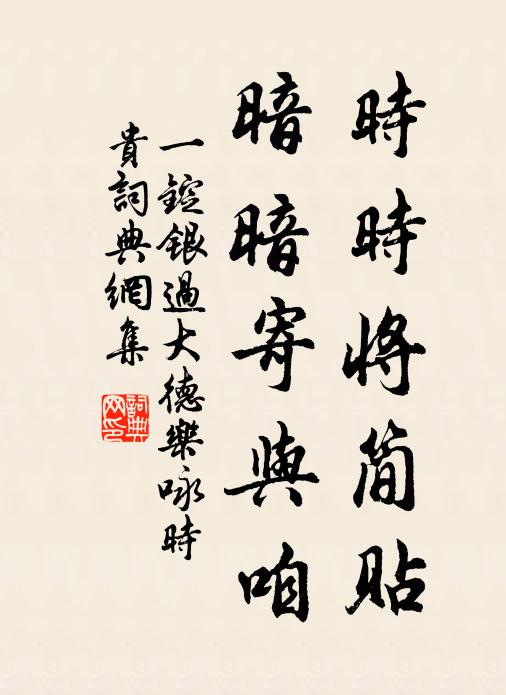 時時將簡貼
暗暗寄與咱
一錠銀過大德樂咏時
貴詞典網集
詞典
网印